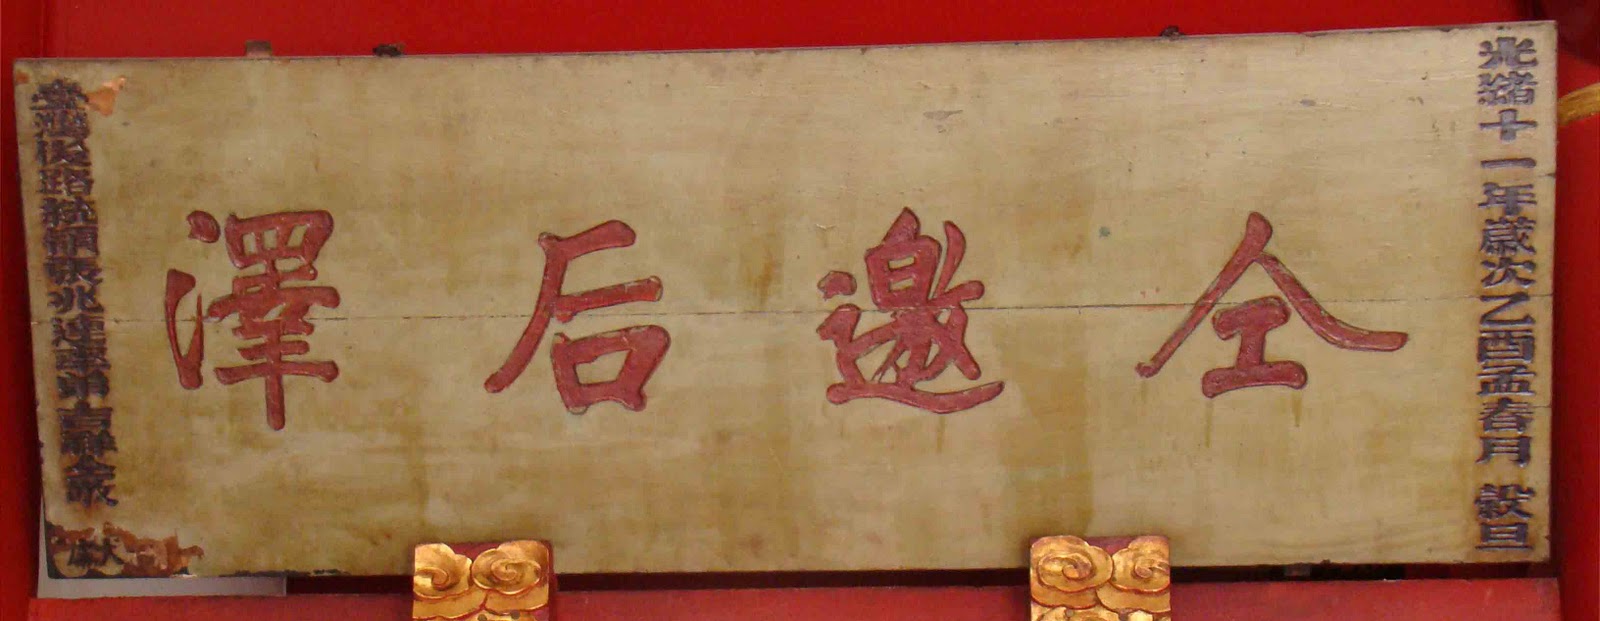 光緒十一年歲次乙酉孟春月 穀旦
仝邀后澤
臺灣後路統領張兆連率弟吉祥仝敬 獻